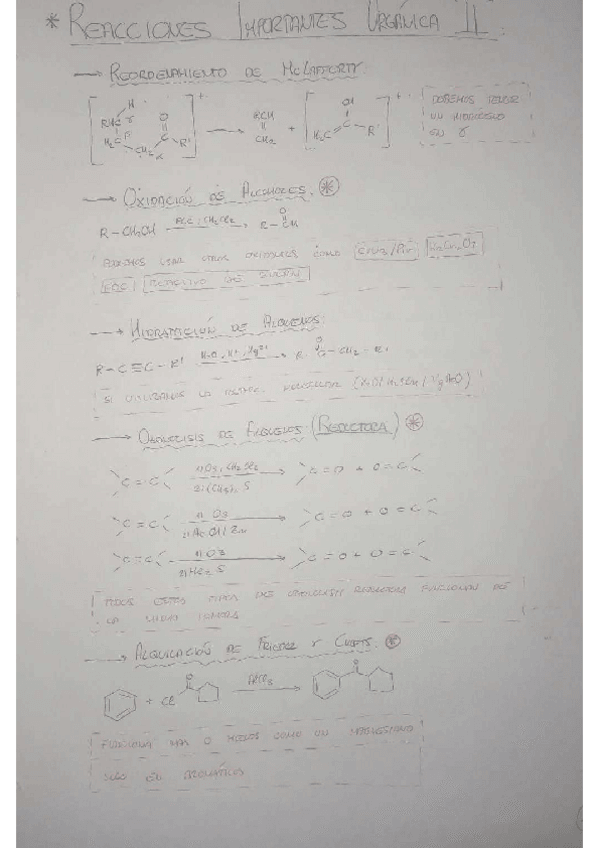 * REACCIONES IMPORTANTES ORGÁNICA II.
→ REORDENAMIENTO DE McLAFFERTY:
DEBEMOS TENER
UN HIDRÓGENO
EN γ
→ OXIDACIÓN DE ALCOHOLES. *
R-CH2OH PCC, CH2Cl2 R-CH
PODEMOS USAR OTROS OXIDANTES COMO CrO3/Pir
→ HIDRATACIÓN DE ALQUENOS:
R-C≡C-R' H2O, H+, Hg2+ R C-CH2-R'
SI UTILIZAMOS LA
→ OZONOLISIS DE ALQUENOS (REDUCTORA) *
C=C 1) O3, CH2Cl2 2) (CH3)2S C=O + O=C
C=C 1) O3 2) AcOH/Zn C=O + O=C
C=C 1) O3 2) Me2S C=O + O=C
TODOS ESTOS TIPOS DE OZONOLISIS REDUCTORA FUNCIONAN DE
LA MISMA MANERA
→ ALQUILACIÓN DE FRIEDEL Y CRAFTS. *
+ Cl O AlCl3 O
FUNCIONA MÁS O MENOS COMO UN
SOLO EN AROMÁTICOS